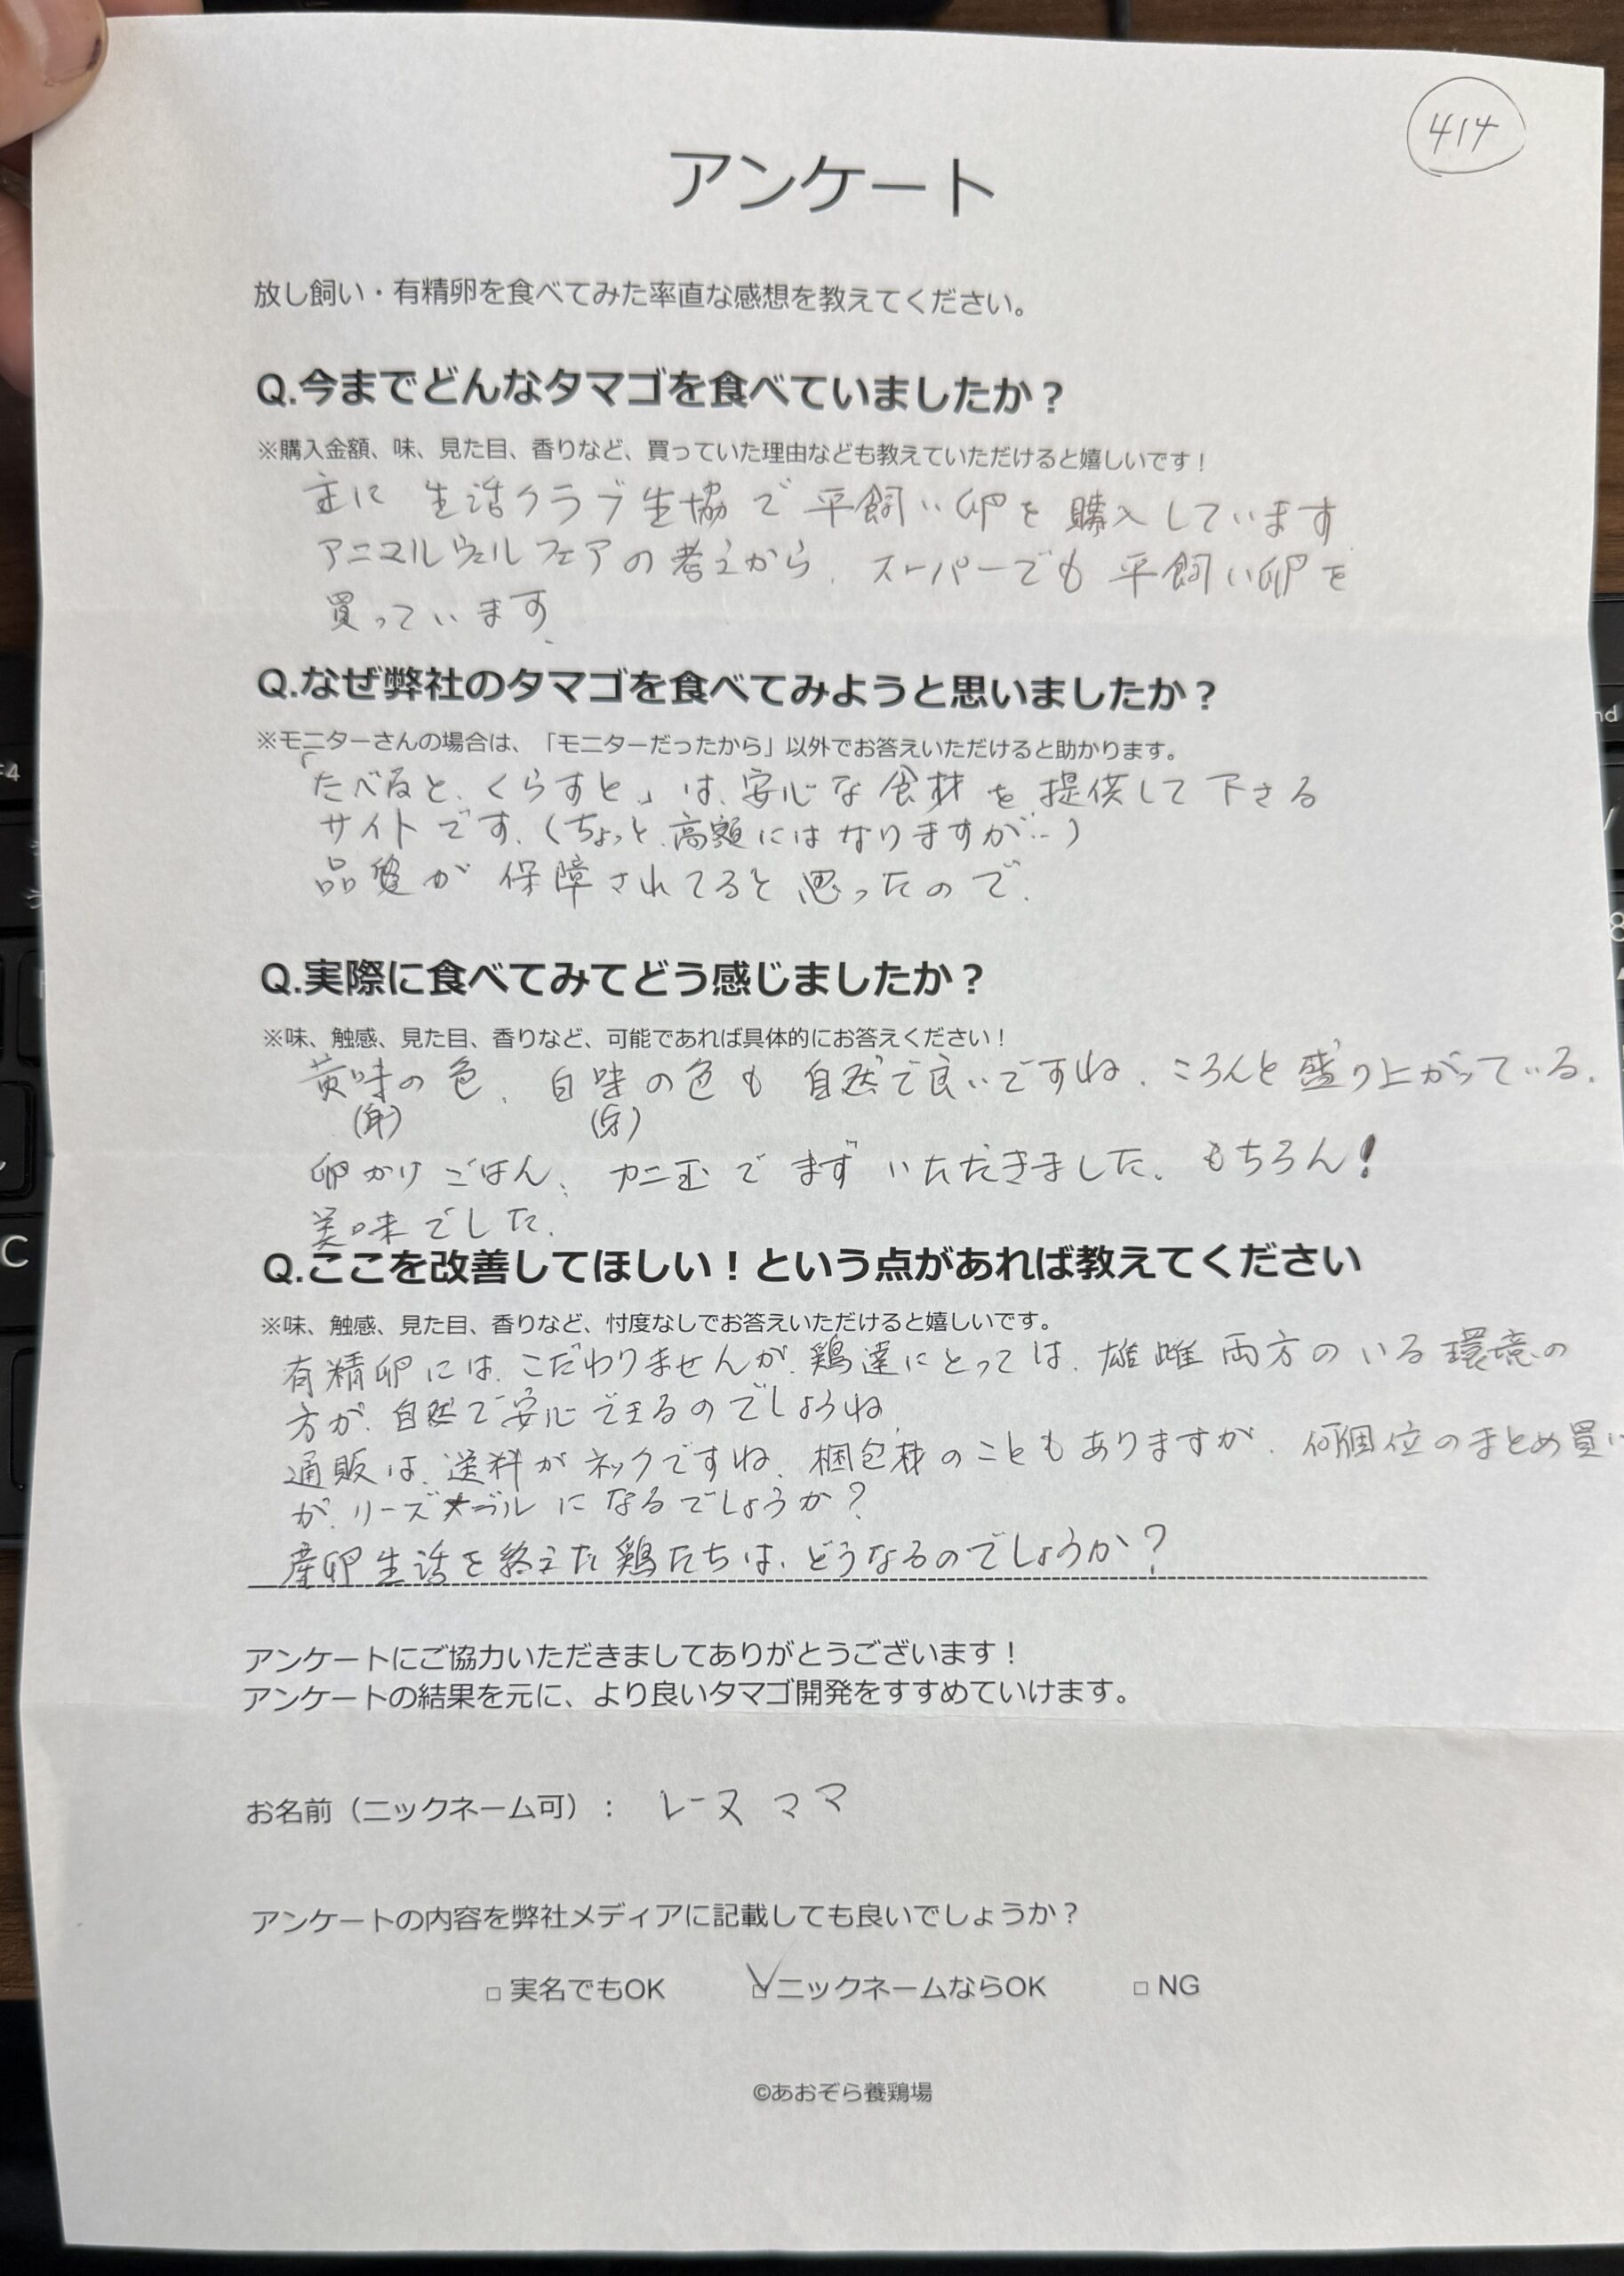 414
アンケート
放し飼い・有精卵を食べてみた率直な感想を教えてください。
Q.今までどんなタマゴを食べていましたか？
※購入金額、味、見た目、香りなど、買っていた理由なども教えていただけると嬉しいです！
主に 生活クラブ生協で 平飼い卵を 購入しています
アニマルウェルフェアの考えから、スーパーでも 平飼い卵を
買っています、
Q.なぜ弊社のタマゴを食べてみようと思いましたか？
※モニターさんの場合は、「モニターだったから」以外でお答えいただけると助かります。
「たべると、くらすと」は、安心な食材を提供して下さる
サイトです、（ちょっと、高額にはなりますが…）
品質が 保障されてると思ったので、
Q.実際に食べてみてどう感じましたか？
※味、触感、見た目、香りなど、可能であれば具体的にお答えください！
黄味の色、白味の色も 自然で良いですね、ころんと盛り上がっている、
（身） （身）
卵かけごはん、カニ玉で まず いただきました、もちろん！
美味でした、
Q.ここを改善してほしい！という点があれば教えてください
※味、触感、見た目、香りなど、忖度なしでお答えいただけると嬉しいです。
有精卵には、こだわりませんが、鶏達にとっては、雄雌 両方のいる環境の
方が、自然で安心できるのでしょうね、
通販は、送料がネックですね、梱包材のこともありますが、何個位のまとめ買い
が、リーズナブルになるでしょうか？
産卵生活を終えた鶏たちは、どうなるのでしょうか？
アンケートにご協力いただきましてありがとうございます！
アンケートの結果を元に、より良いタマゴ開発をすすめていけます。
お名前（ニックネーム可）： レーヌママ
アンケートの内容を弊社メディアに記載しても良いでしょうか？
□ 実名でもOK ☑ニックネームならOK □ NG
©あおぞら養鶏場